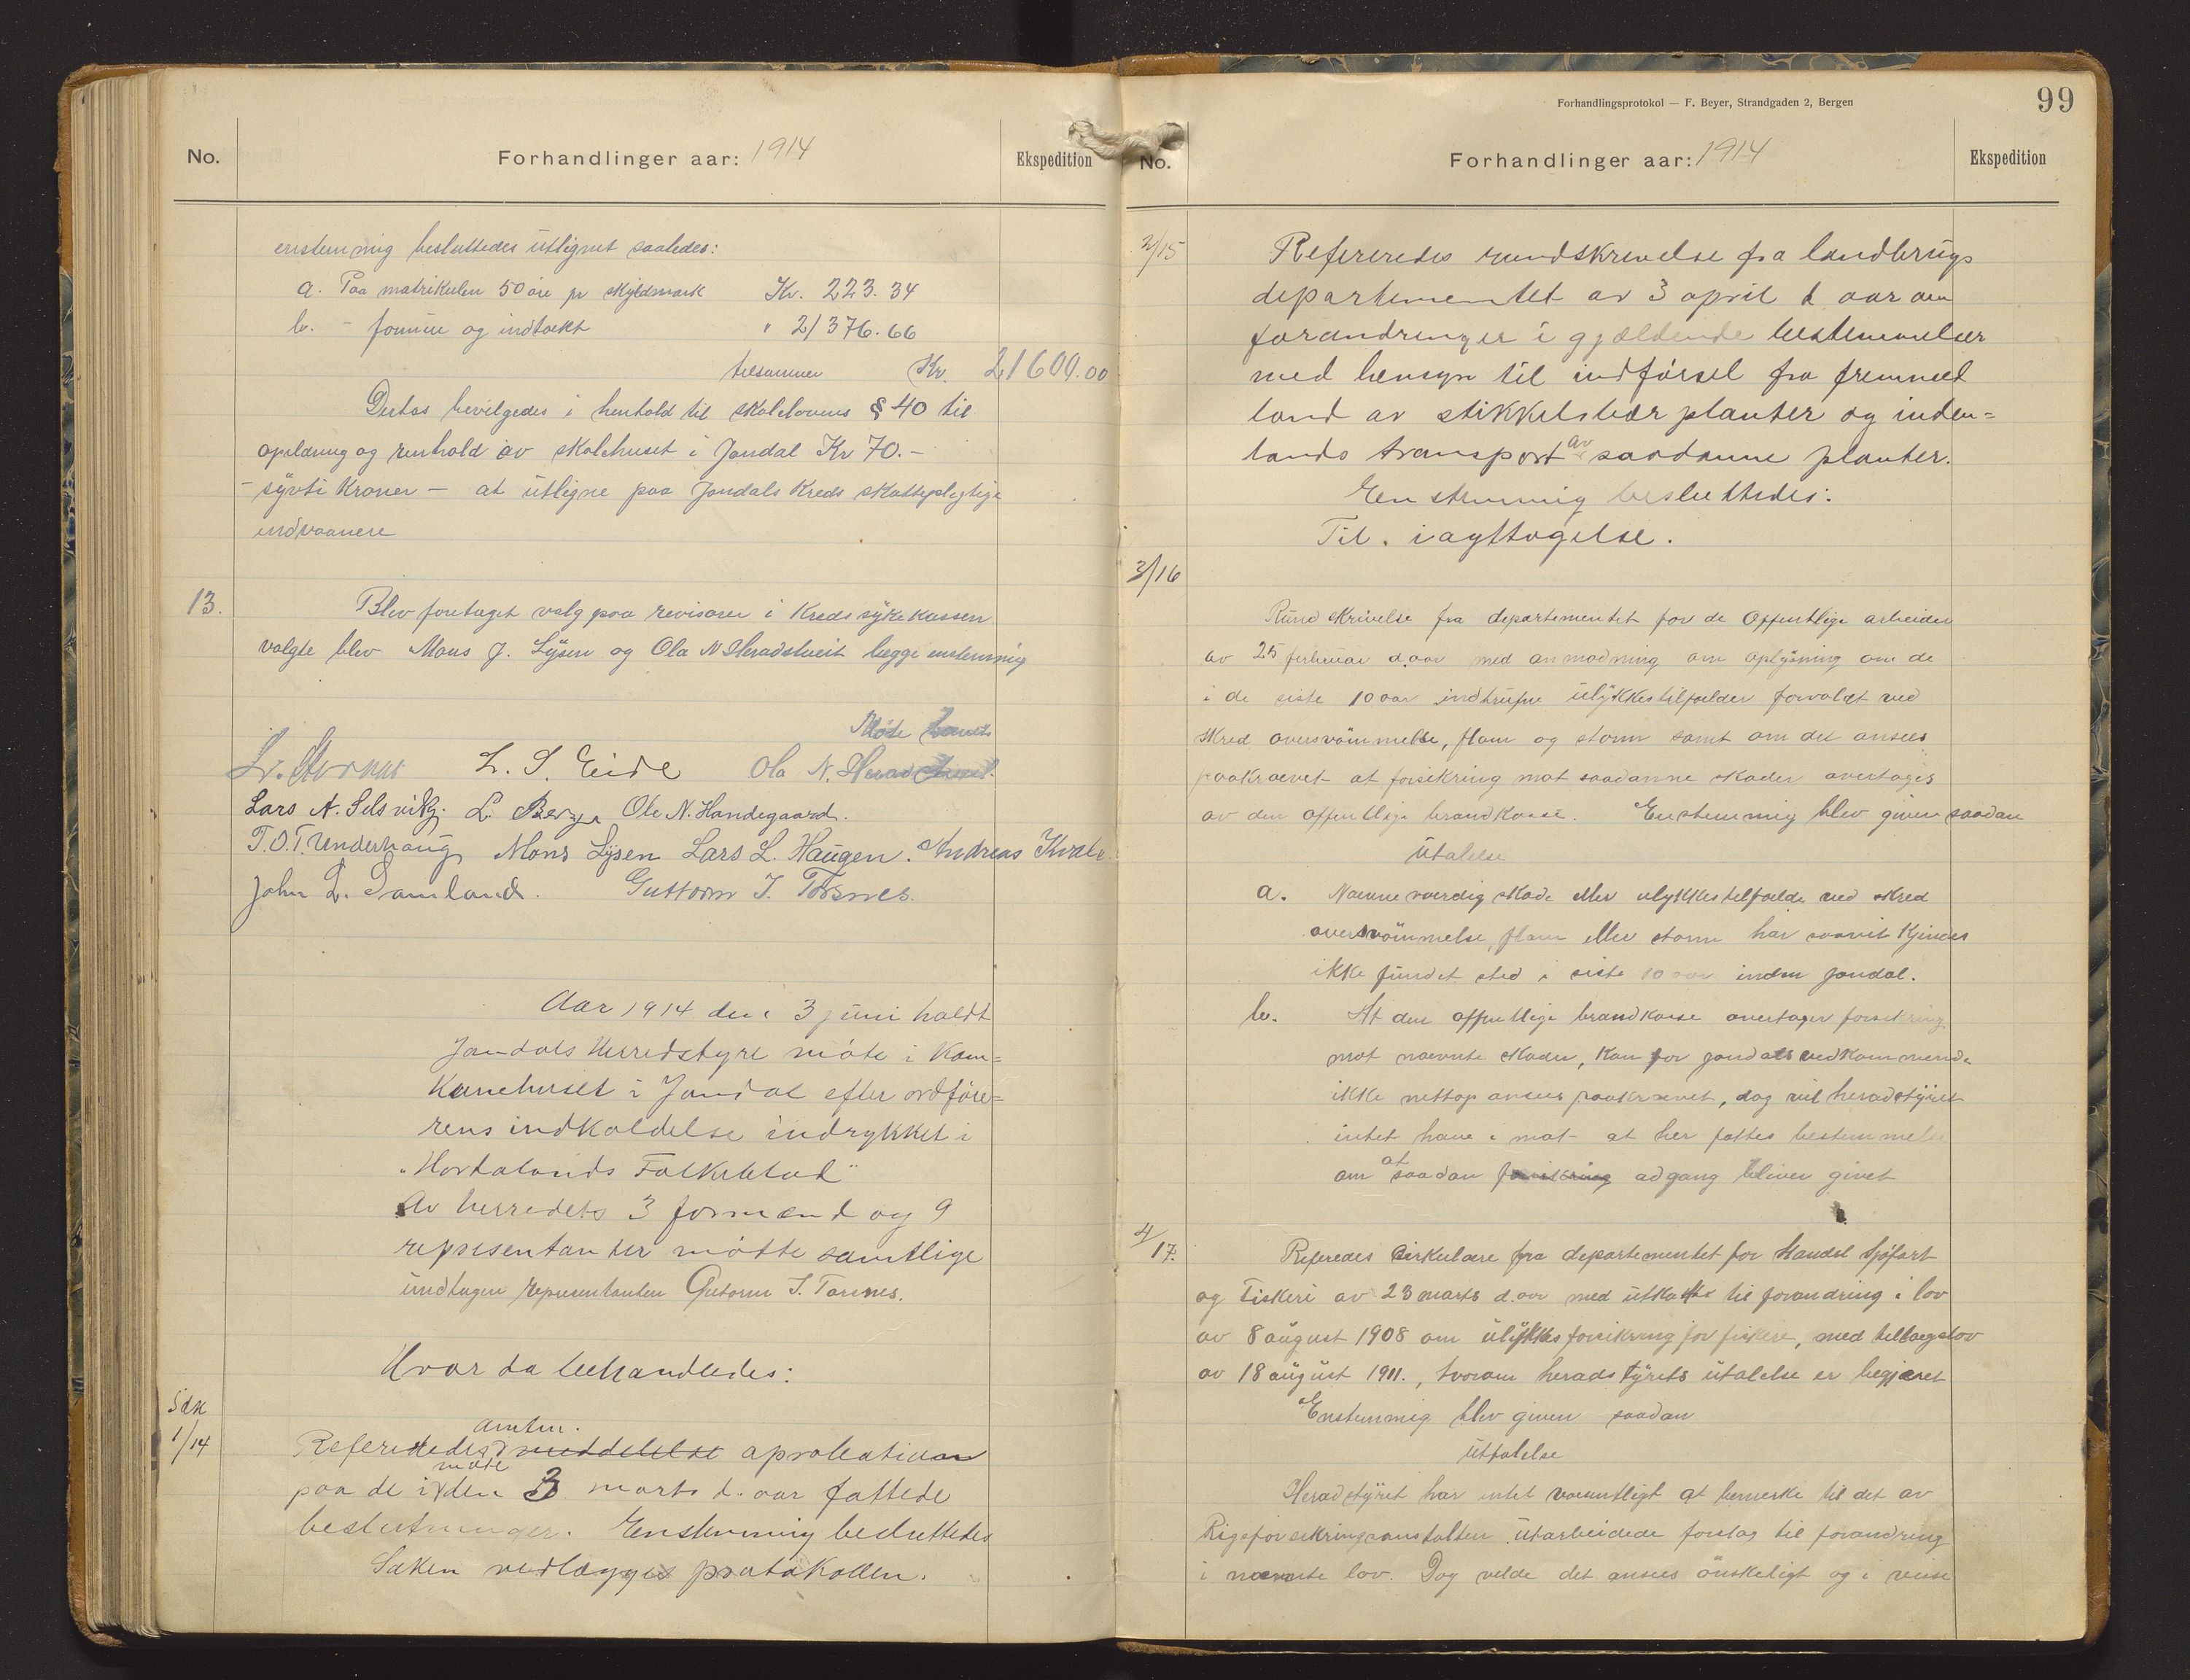 No.
Forhandlinger aar: 1914
Ekspedition
enstemmig besluttedes utlignet saaledes:
a. Paa matrikulen 50 øre pr skyldmark Kr. 223.34
b. - formue og indtækt " 21376.66
tilsammen Kr. 21600.00
Dertos bevilgedes i henhold til skolelovens § 40 til
opildning og renhold av skolehuset i Jondal Kr 70.-
- sytti Kroner - at utligne paa Jondals Kreds skattepligtige
indvaanere
13.
Blev foretaget valg paa revisorer i Kredssykekassen
valgte blev Mons J. Lysen og Ola N Heradstveit begge enstemmig
Møte hævet
L. S. Eide Ola N. Heradstveit.
Lars N. Selsvik. L. Berge Ole N. Handegaard.
T.O.T. Underhaug Mons Lysen Lars L. Haugen. Andreas Kvale.
John L. Samland. Guttorm J. Torsnes.
Aar 1914 den 3 juni holdt
Jondals Herredstyre møte i Kom=
munehuset i Jondal efter ordføre=
rens indkaldelse indrykket i
"Hordalands Folkeblad"
Av herredets 3 formænd og 9
representanter møtte samtlige
undtagen representanten Gutorm J. Torsnes.
Hvor da behandledes:
Sak
1/14
Amtm.
Refereredes meddelelse aprobation
møte
paa de i den 3 marts d. aar fattede
beslutninger. Enstemmig besluttedes
Saken vedlægges protokollen.
Forhandlingsprotokol — F. Beyer, Strandgaden 2, Bergen
99
No.
Forhandlinger aar: 1914
Ekspedition
2/15
Refereredes rundskrivelse fra landbrugs
departementet av 3 april d aar om
forandringer i gjældende bestemmelser
med hensyn til indførsel fra fremmed
land av stikkelsbær planter og inden=
lands transport av saadanne planter.
Enstemmig besluttedes:
Til iagttagelse.
3/16
Rundskrivelse fra departementet for de Offentlige arbeider
av 25 februar d.aar med anmodning om oplysning om de
i de siste 10 aar indtrufne ulykkestilfælder forvoldt ved
skred oversvømmelse, flom og storm samt om det ansees
paakrævet at forsikring mot saadanne skader overtages
av den offentlige brandkasse. Enstemmig blev given saadan
Utalelse
a. Nævneværdig skade eller ulykkestilfælde ved skred
oversvømmelse, flom eller storm har saavit kjendes
ikke fundet sted i siste 10 aar inden Jondal.
b. At den offentlige brandkasse overtager forsikring
mot nævnte skader, kan for Jondals vedkommende
ikke nettop ansees paakrævet, dog vil heradstyret
intet have i mot at her fattes bestemmelse
om at saadan forsikring adgang bliver givet
4/17.
Referedes Cirkulære fra departementet for Handel Sjøfart
og Fiskeri av 23 marts d.aar med utkast til forandring i lov
av 8 august 1908 om ulykkesforsikring for fiskere, med tillægslov
av 18 august 1911., hvorom heradstyrets utalelse er begjæret
Enstemmig blev given saadan
utfalelse
Heradstyret har intet væsentligt at bemerke til det av
Rigsforsikringsanstalten utarbeidede forslag til forandring
i nævnte lov. Dog vilde det ansees ønskeligt og i visse